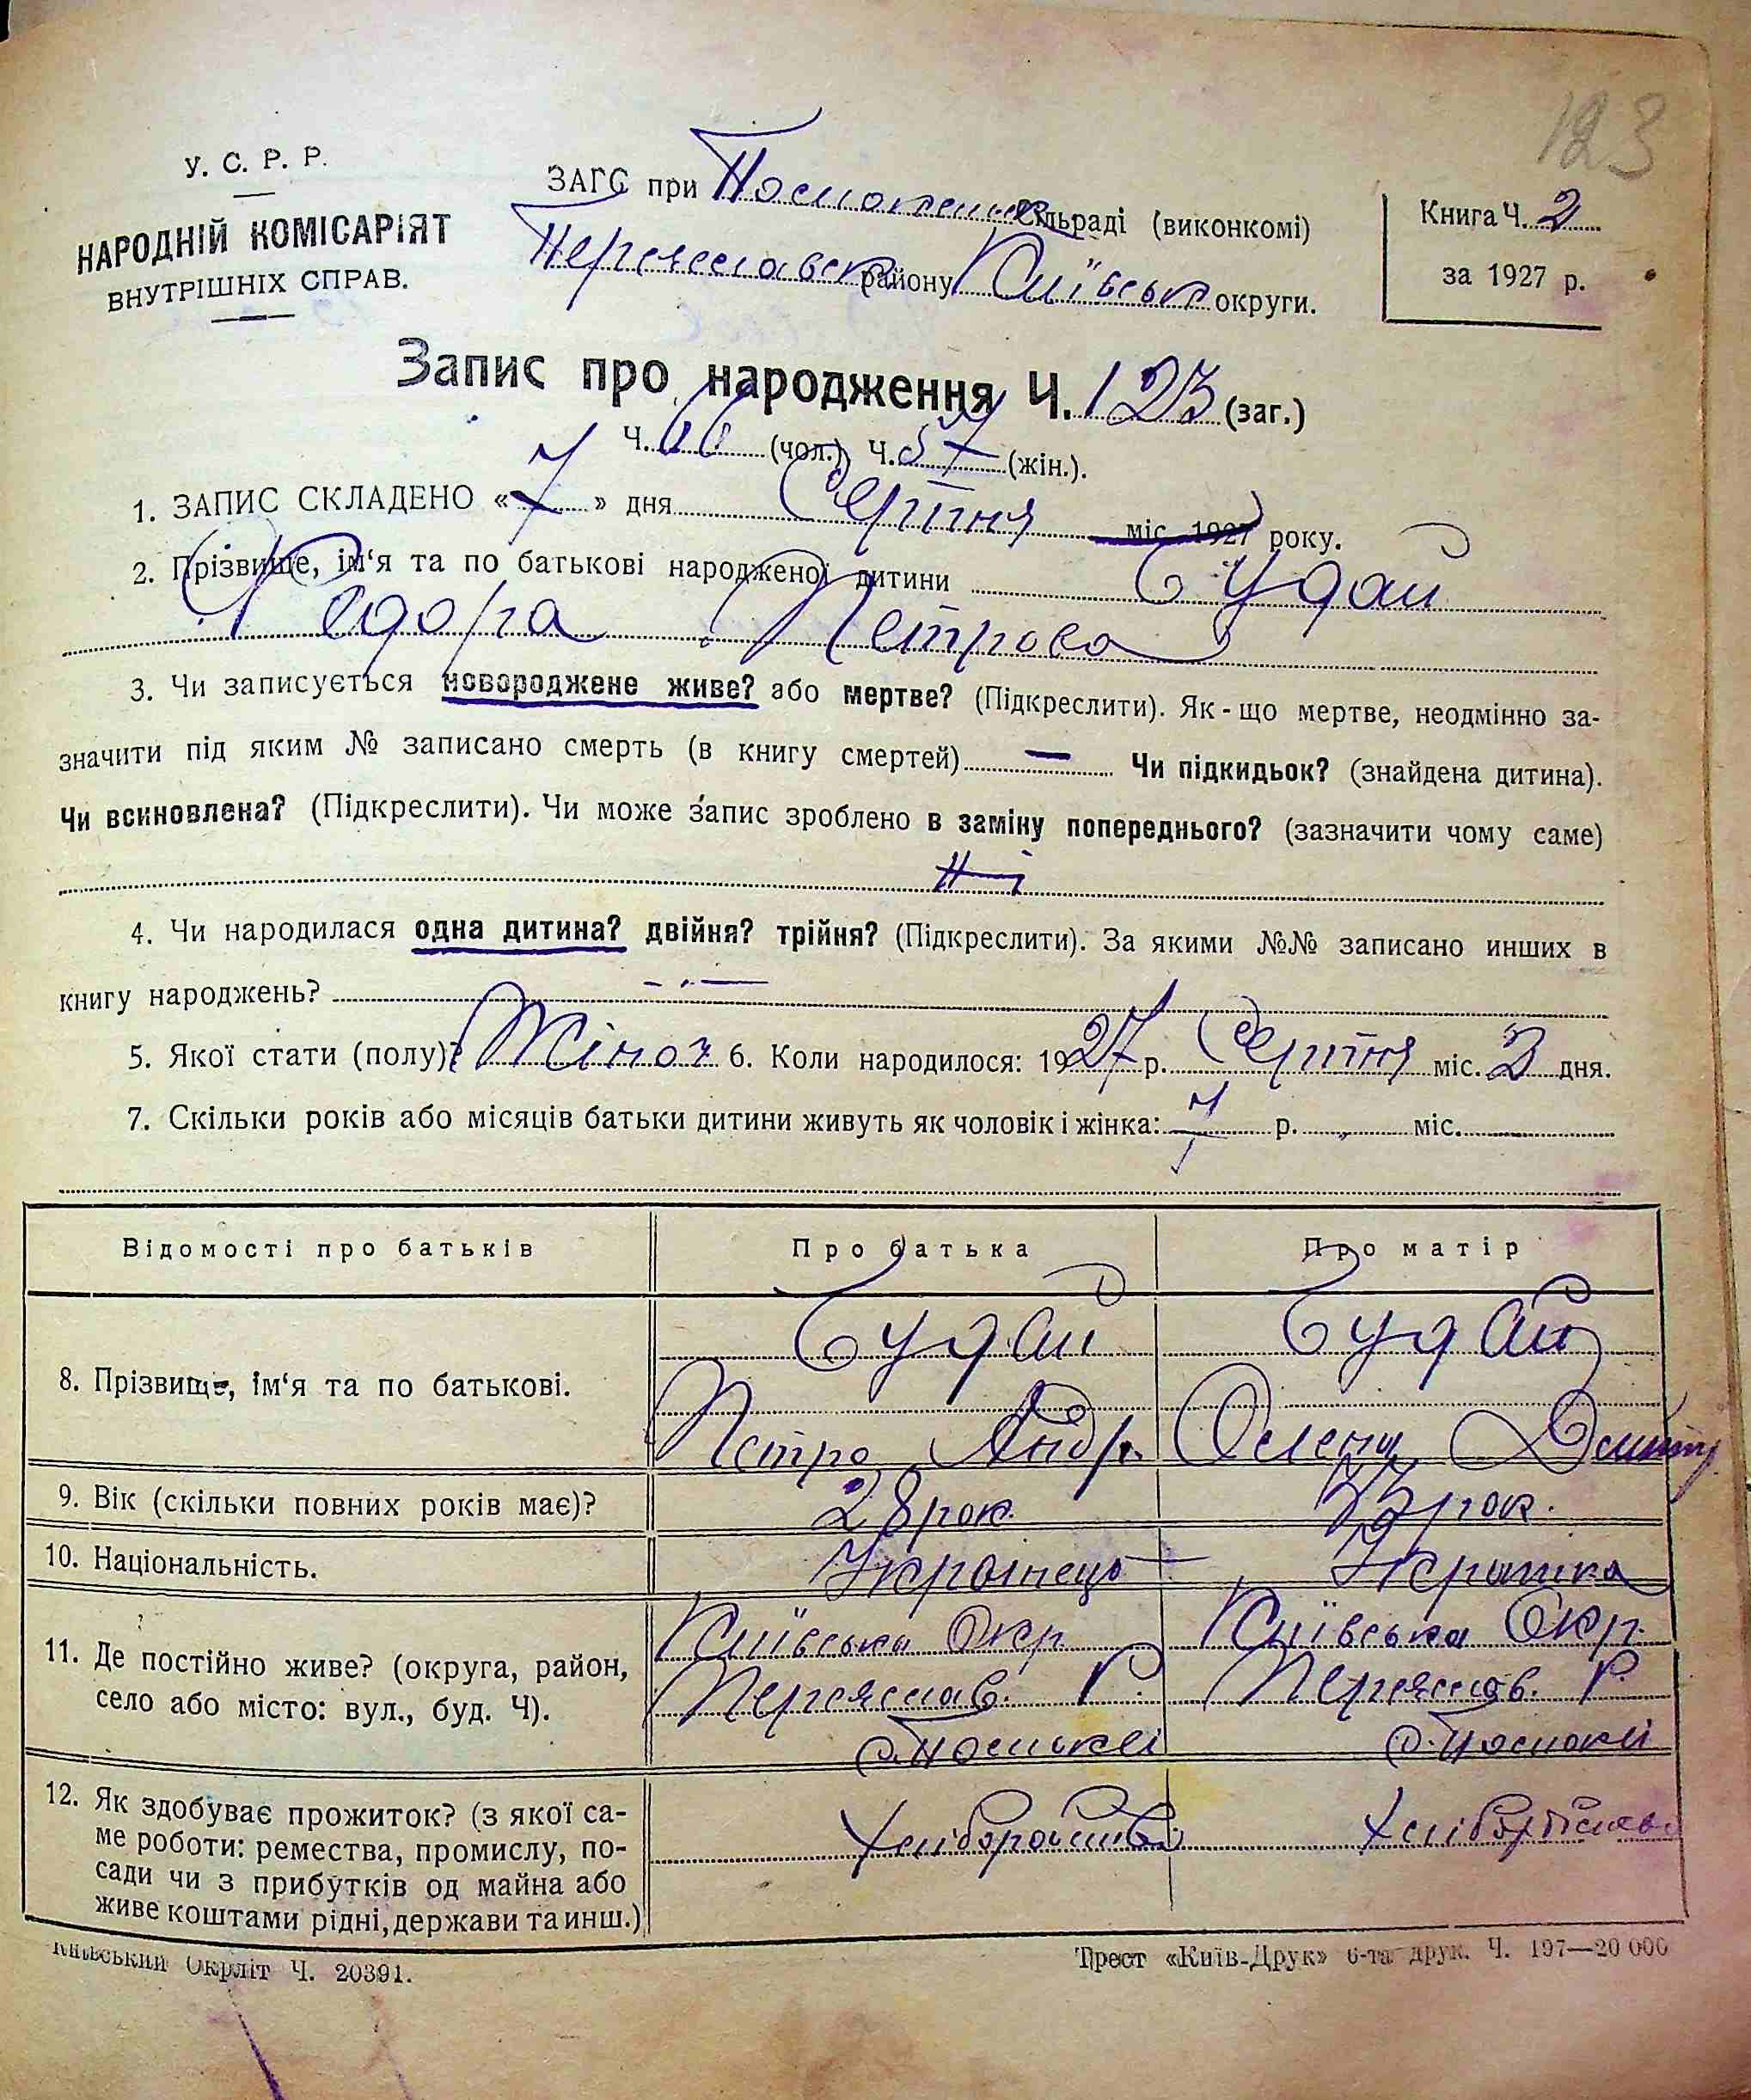 123
У. С. Р. Р.
НАРОДНІЙ КОМІСАРІЯТ
ВНУТРІШНІХ СПРАВ.
ЗАГС при сільраді (виконкомі)
Переяславск району Київськ округи.
Книга Ч. 2
за 1927 р.
Запис про народження Ч. 123 (заг.)
Ч. 66 (чол.) Ч. 57 (жін.).
1. ЗАПИС СКЛАДЕНО «7» дня Серпня міс. 1927 року.
2. Прізвище, ім‘я та по батькові народженої дитини Будай
Федора Петрова
3. Чи записується новороджене живе? або мертве? (Підкреслити). Як-що мертве, неодмінно за-
значити під яким № записано смерть (в книгу смертей) — Чи підкидьок? (знайдена дитина).
Чи всиновлена? (Підкреслити). Чи може запис зроблено в заміну попереднього? (зазначити чому саме)
Ні
4. Чи народилася одна дитина? двійня? трійня? (Підкреслити). За якими №№ записано инших в
книгу народжень?
5. Якої стати (полу)? Жіноч 6. Коли народилося: 1927 р. Серпня міс. 2 дня.
7. Скільки років або місяців батьки дитини живуть як чоловік і жінка: 7 р. „ міс.
Відомості про батьків Про батька Про матір
8. Прізвище, ім‘я та по батькові. Будай Будай
Петро Андр. Олена Дмитр
9. Вік (скільки повних років має)? 28 рок. 33 рок.
10. Національність. Українець Українка
11. Де постійно живе? (округа, район,
село або місто: вул., буд. Ч).
Київська Окр Київська Окр.
Переяслав. Р. Переяслав. Р.
12. Як здобуває прожиток? (з якої са-
ме роботи: ремества, промислу, по-
сади чи з прибутків од майна або
живе коштами рідні, держави та инш.)
Хліборобство Хліборобство
Київський Окрліт Ч. 20391.
Трест «Київ-Друк» 6-та друк. Ч. 197—20 000